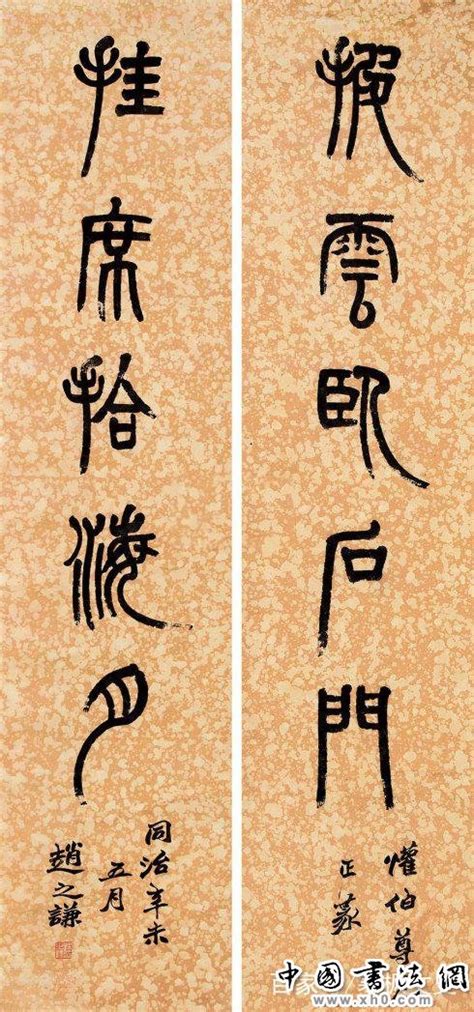 披雲臥石門
懽伯尊
正篆
挂席拾海月
同治辛未
五月
趙之謙
中國書法網
www.xh0.com